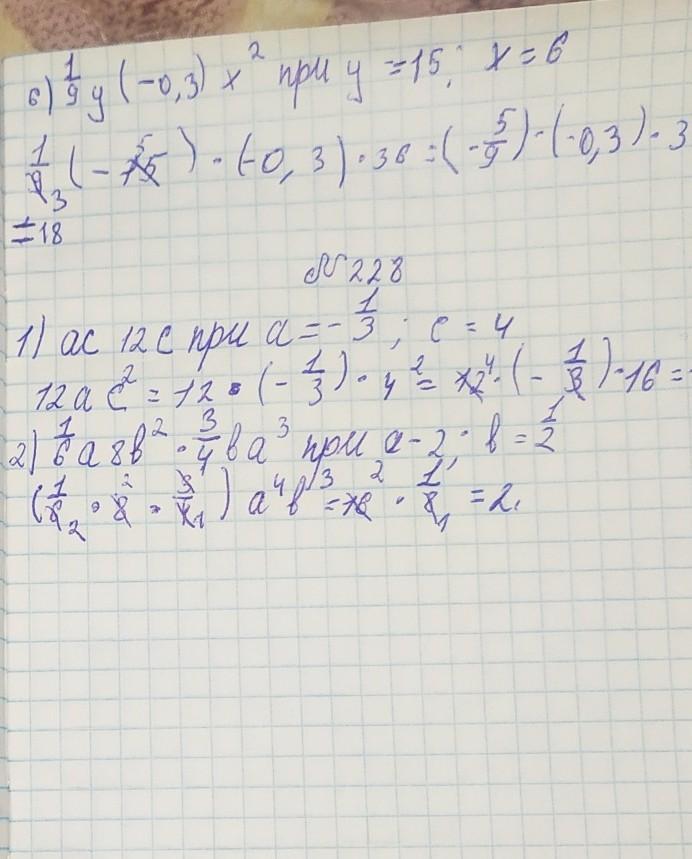 6) 1/9 y (-0,3) x² при y = 15; x = 6
1/9 3 (- 15 5) · (-0,3) · 36 = (- 5/9) · (-0,3) · 3
= 18
№ 228
1) ac 12c при a = - 1/3; c = 4
12ac² = 12 · (- 1/3) · 4² = 12 4 · (- 1/3) · 16 = -
2) 1/6 a 8b² · 3/4 ba³ при a - 2; b = 1/2
(1/6 2 · 8 2 · 3/4 1) a⁴b³ = 16 2 · 1/8 1 = 2.